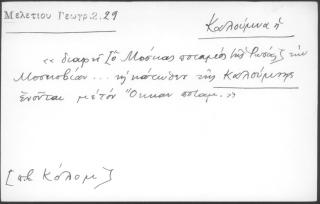 Μελετίου Γεωγρ. 2, 29
Καλούμνα ἡ
« διαιρεῖ [ὁ Μόσκας ποταμὸς τῆς Ρωσίας] τὴν
Μοσκοβίαν ... κάτωθεν τῆς Καλούμνης
ἑνοῦται μὲ τὸν Ὄκκαν ποταμ. »
[πβ Κόλομ ]